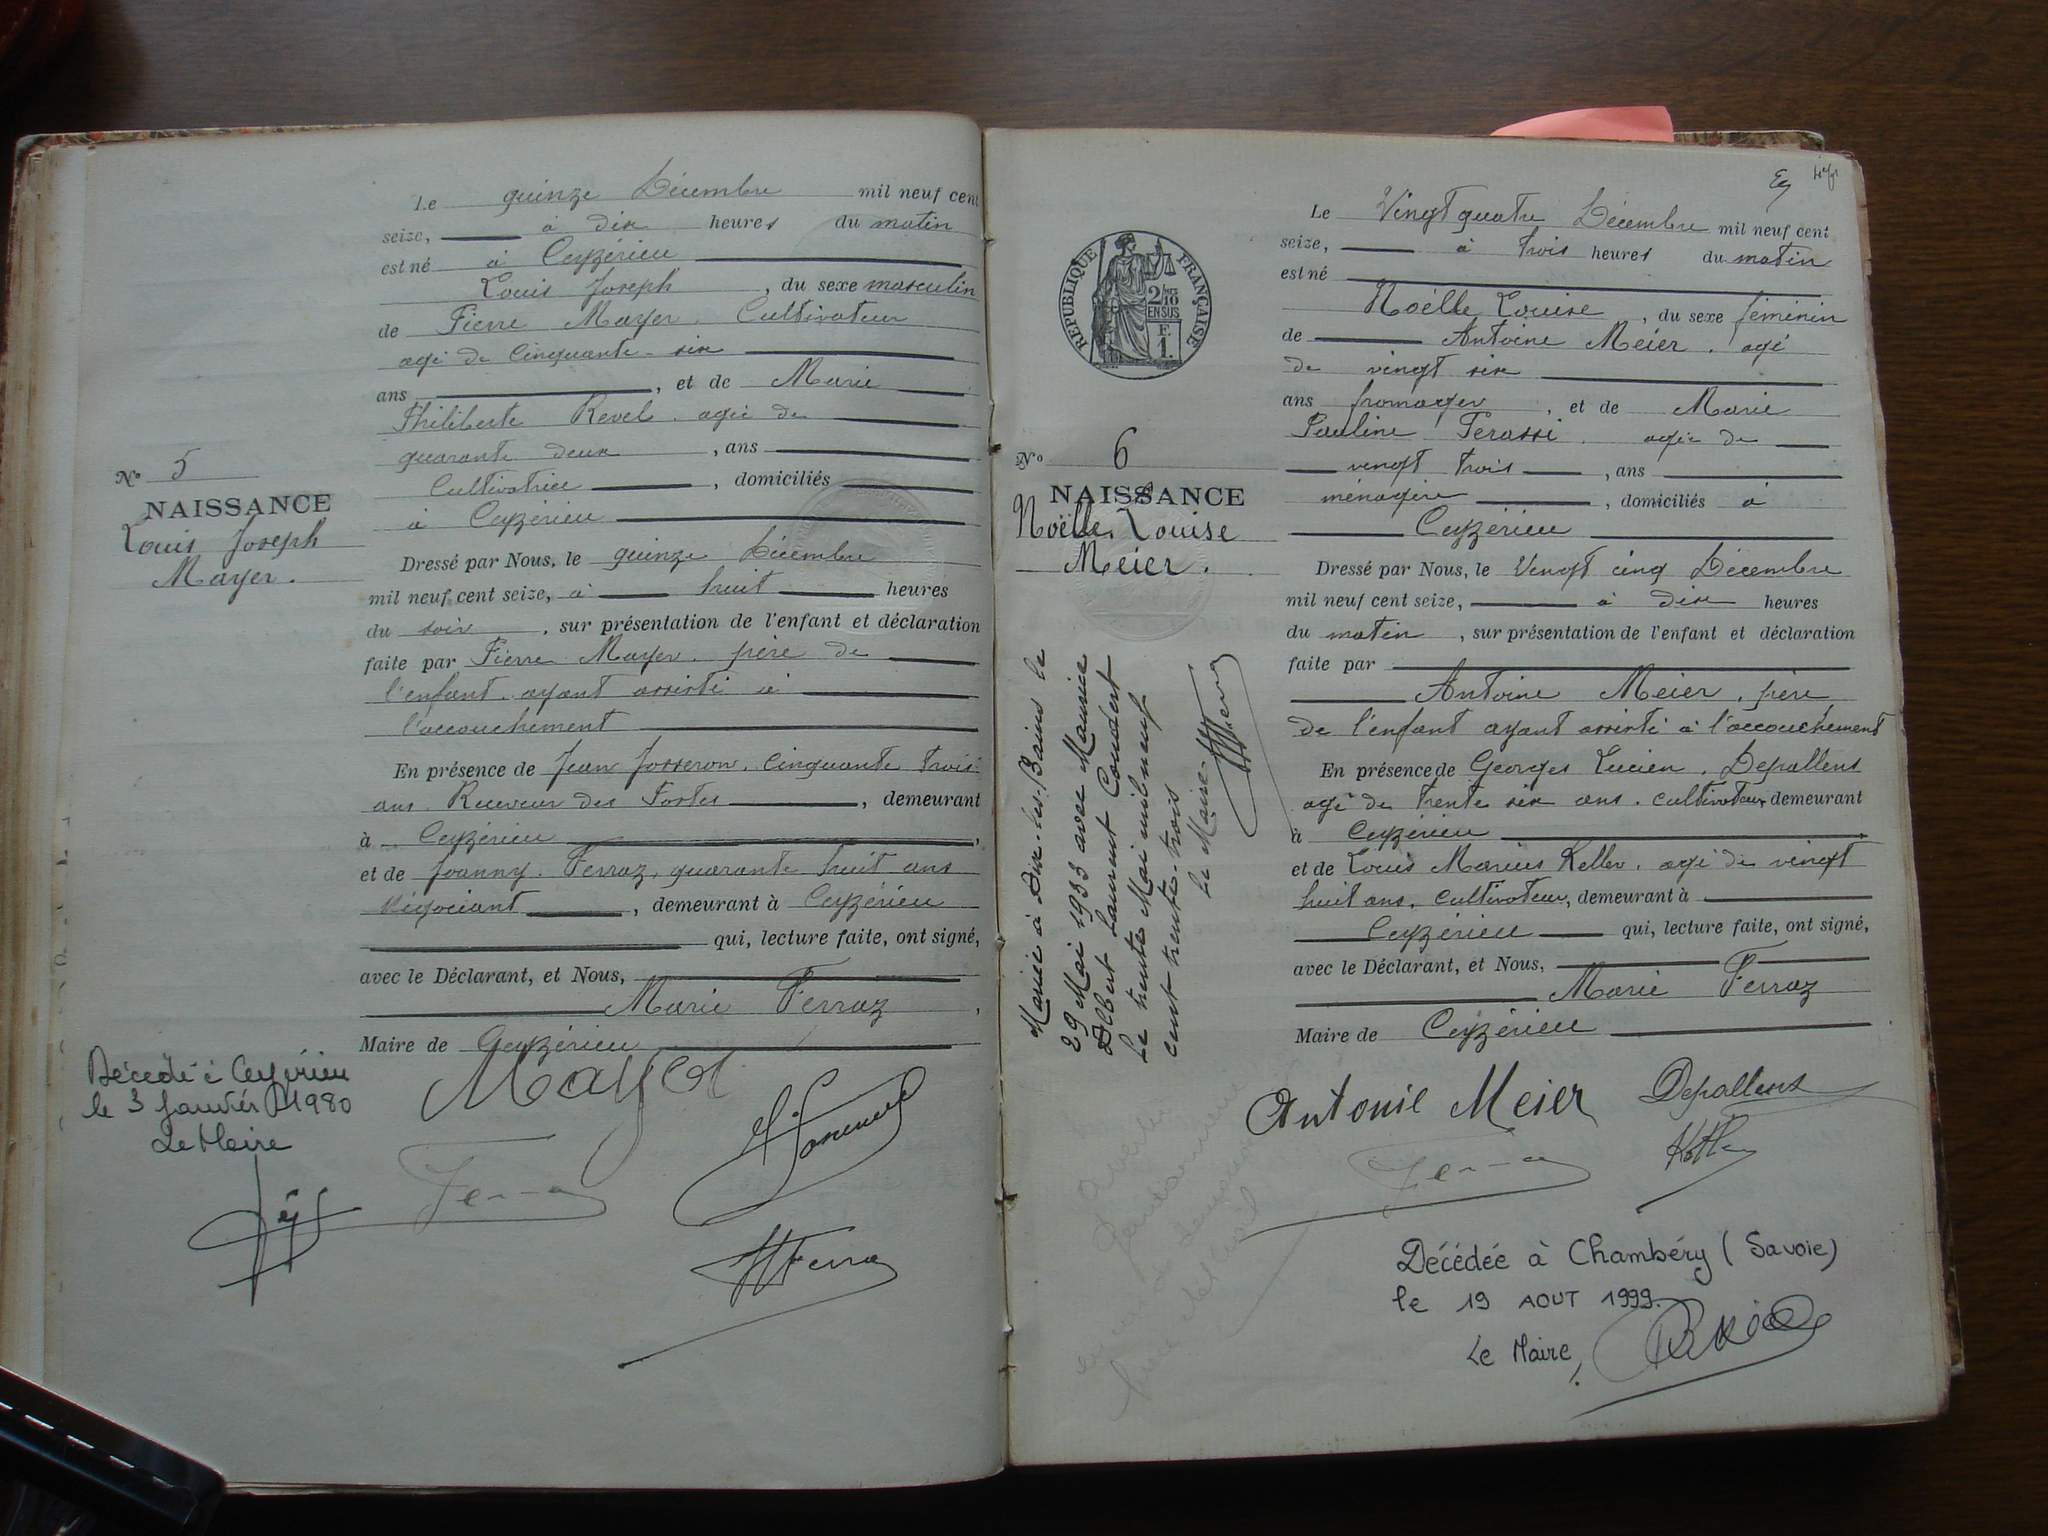 Le quinze Décembre mil neuf cent
seize, à dix heures du matin
est né à Ceyzérieu
Louis Joseph, du sexe masculin
de Pierre Mayer. Cultivateur
agé de Cinquante-six
ans, et de Marie
Philiberte Revel. agée de
quarante deux, ans
Cultivatrice, domiciliés
à Ceyzérieu
Nº 5
NAISSANCE
Louis Joseph
Mayer.
Dressé par Nous, le quinze Décembre
mil neuf cent seize, à huit heures
du soir, sur présentation de l'enfant et déclaration
faite par Pierre Mayer. père de
l'enfant. ayant assisté à
l'accouchement
En présence de Jean Josseron. Cinquante trois
ans. Receveur des Postes, demeurant
à Ceyzérieu,
et de Joanny. Ferraz, quarante huit ans
Négociant, demeurant à Ceyzérieu
qui, lecture faite, ont signé,
avec le Déclarant, et Nous,
Marie Ferraz,
Maire de Ceyzérieu
Mayer
Décédé à Ceyzérieu
le 3 Janvier 1980
Le Maire
Ferraz
Le Vingt quatre Décembre mil neuf cent
seize, à trois heures du matin
est né
Noélle Louise, du sexe féminin
de Antoine Meier. agé
de vingt six
ans fromager, et de Marie
Pauline Perassi. agée de
vingt trois, ans
ménagère, domiciliés à
Ceyzérieu
RÉPUBLIQUE FRANÇAISE
2/10
EN SUS
F.
1.
Nº 6
NAISSANCE
Noëlle Louise
Meier.
Dressé par Nous, le Vingt cinq Décembre
mil neuf cent seize, à dix heures
du matin, sur présentation de l'enfant et déclaration
faite par
Antoine Meier. père
de l'enfant ayant assisté à l'accouchement
En présence de Georges Lucien. Depallens
agé de trente six ans. cultivateur demeurant
à Ceyzérieu
et de Louis Marius Keller. agé de vingt
huit ans. Cultivateur, demeurant à
Ceyzérieu qui, lecture faite, ont signé,
avec le Déclarant, et Nous,
Marie Ferraz
Maire de Ceyzérieu
Mariée à Aix-les-Bains le
29 Mai 1933 avec Maurice
Albert Laurent Coudert
Le trente Mai mil neuf
cent trente-trois
Le Maire.
Antonie Meier
Depallens
Décédée à Chambéry (Savoie)
le 19 AOUT 1999.
Le Maire,